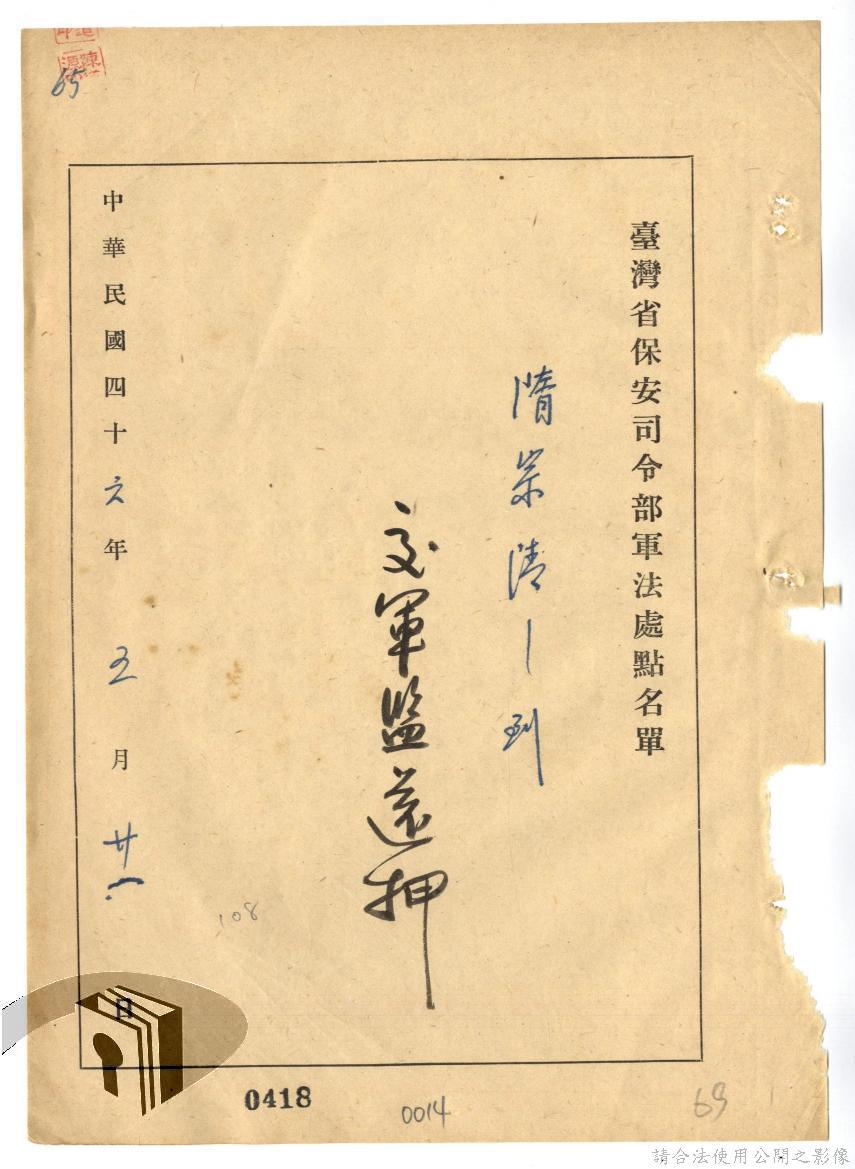 65
臺灣省保安司令部軍法處點名單
隋崇清 — 到
交軍監還押
中華民國四十六年五月廿八日
108
0418
0014
69
請合法使用公開之影像